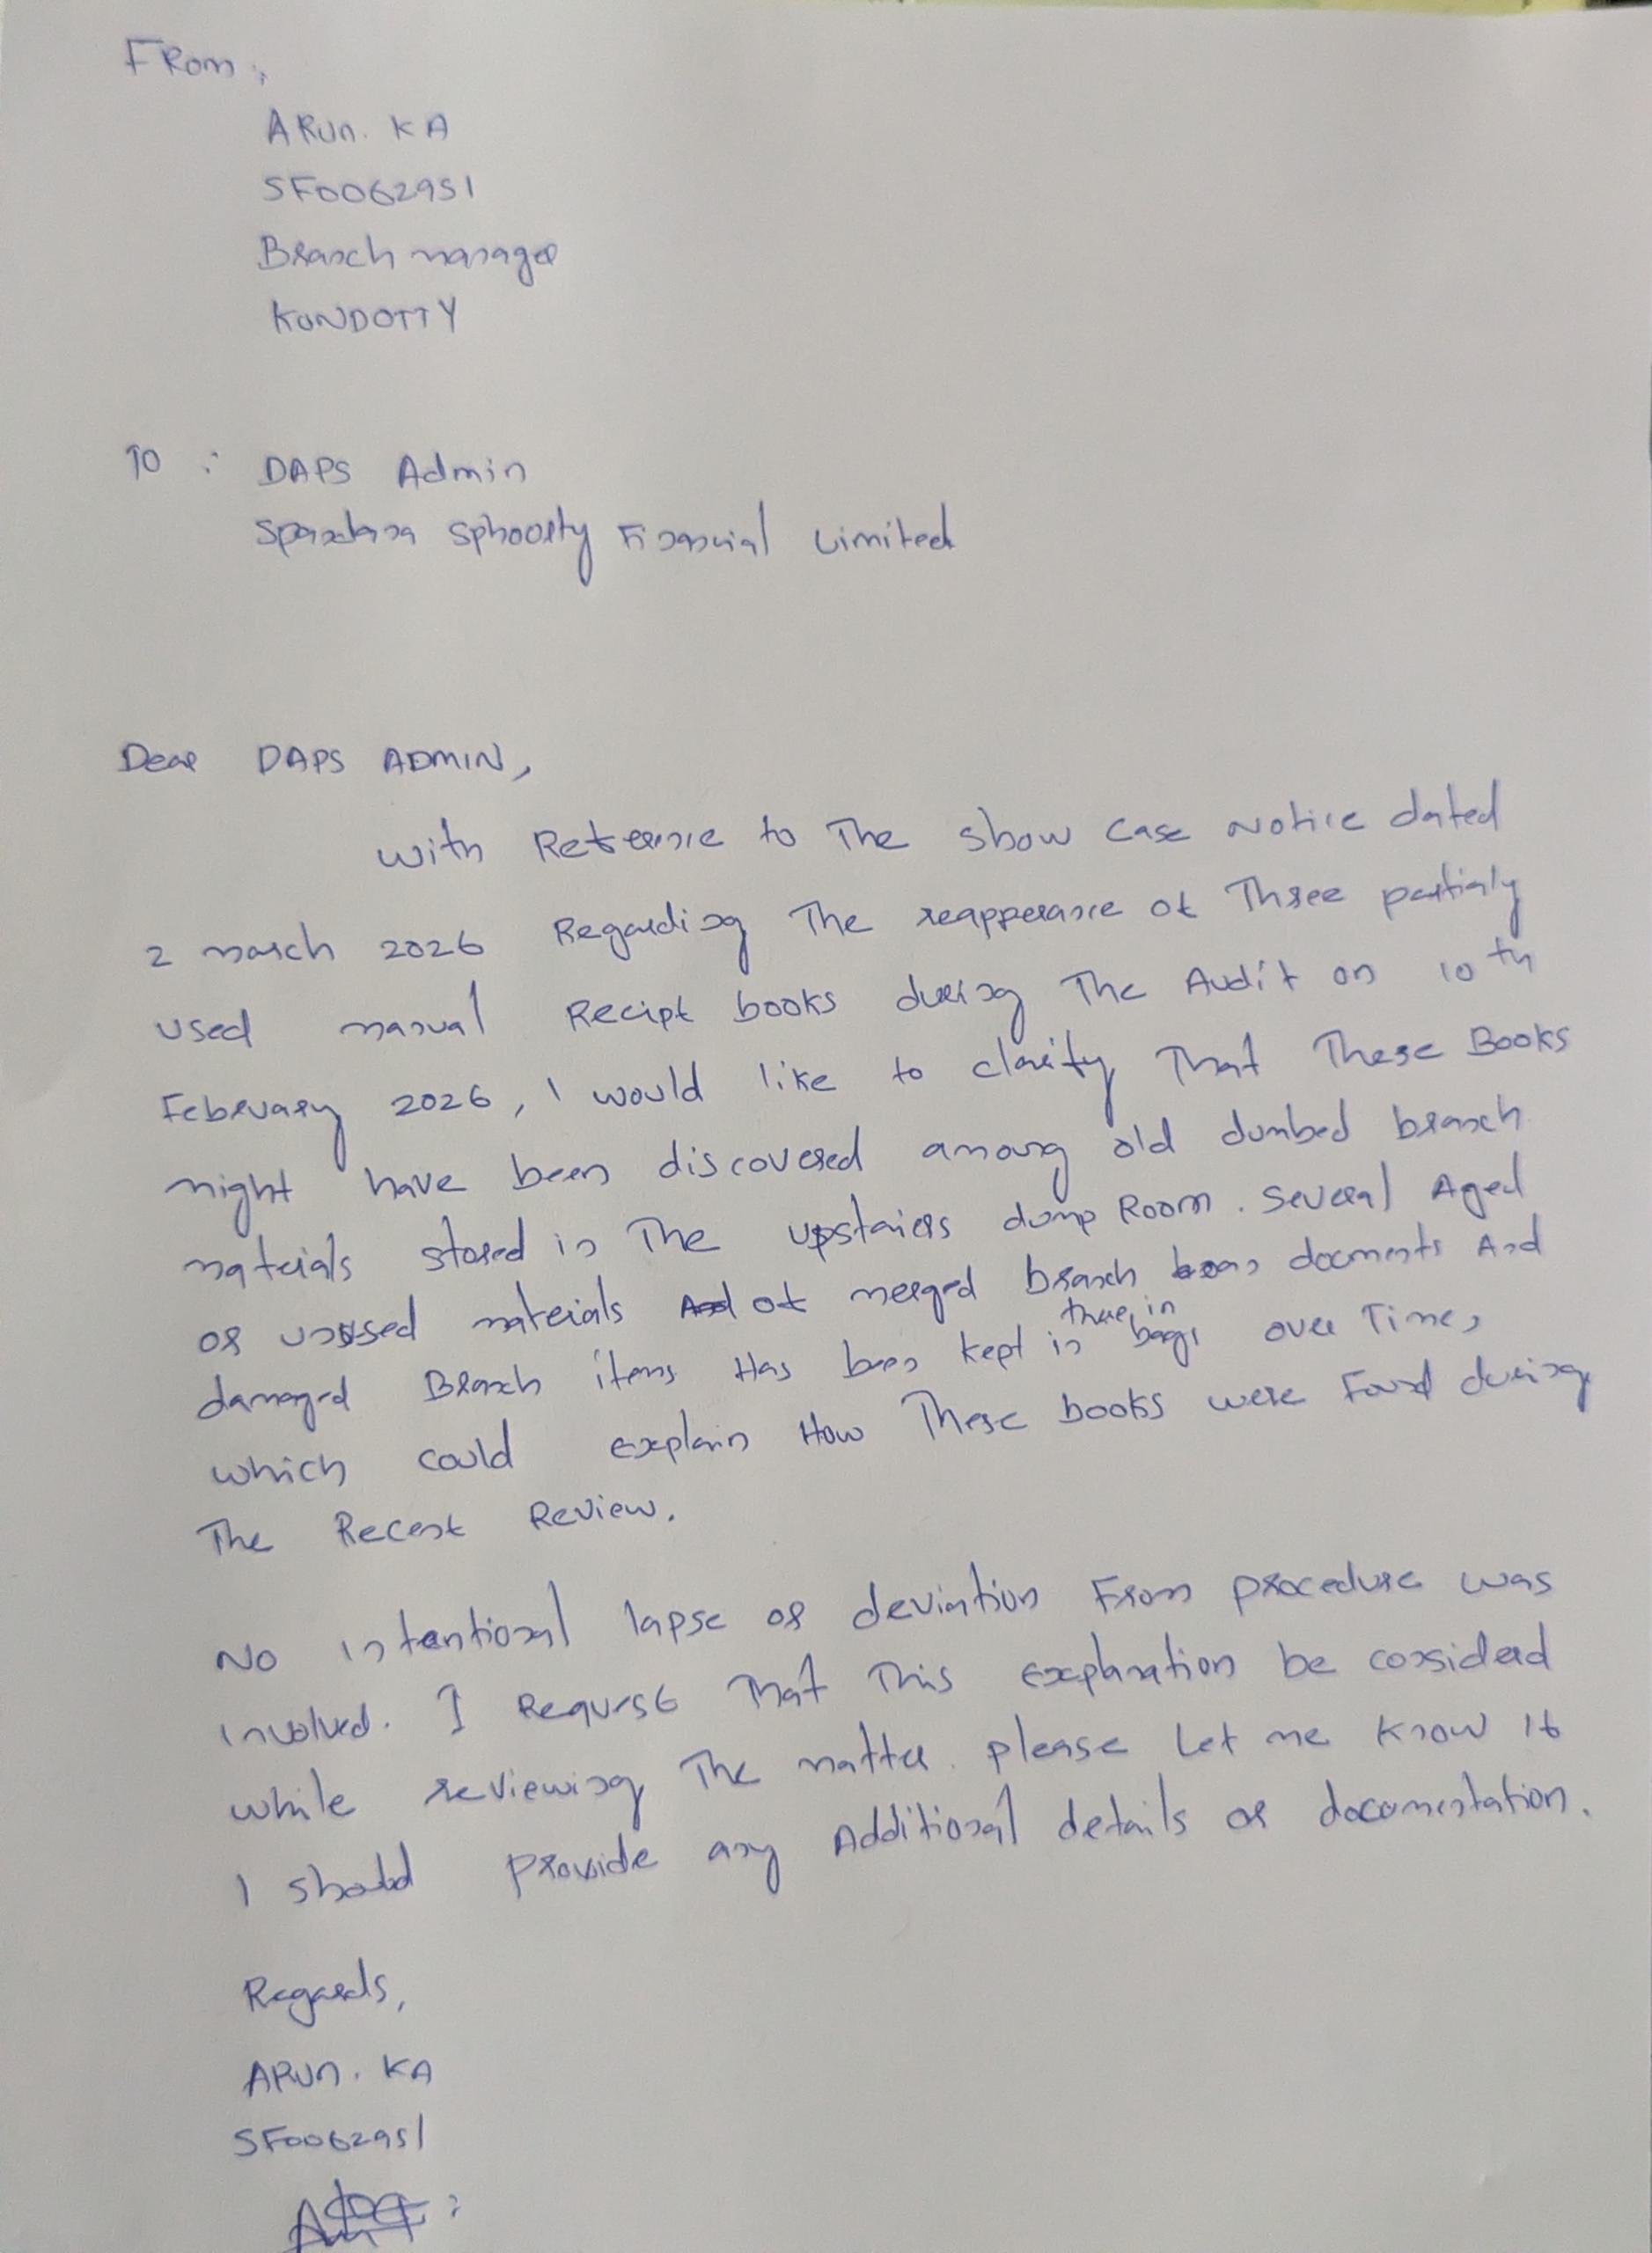 From :
ARun. KA
SF0062951
Branch manager
KONDOTTY
To : DAPS Admin
Spandana Sphoorty Financial Limited
Dear DAPS ADMIN,
with Reference to The show case Notice dated
2 march 2026 Regarding The reapperance of Three partialy
used manual Recipt books during The Audit on 10th
February 2026, I would like to clarify That These Books
might have been discovered among old dumbed branch
materials stored in The upstairs dump Room. Several Aged
or unused materials of merged branch documents And
damaged Branch items Has been kept in there in bags over Time,
which could explain How These books were Found during
The Recent Review.
No intentional lapse or deviation From procedure was
involved. I Request That This explanation be considerd
while reviewing The matter. please Let me Know If
I should provide any Additional details or documentation.
Regards,
ARUn. KA
SF0062951